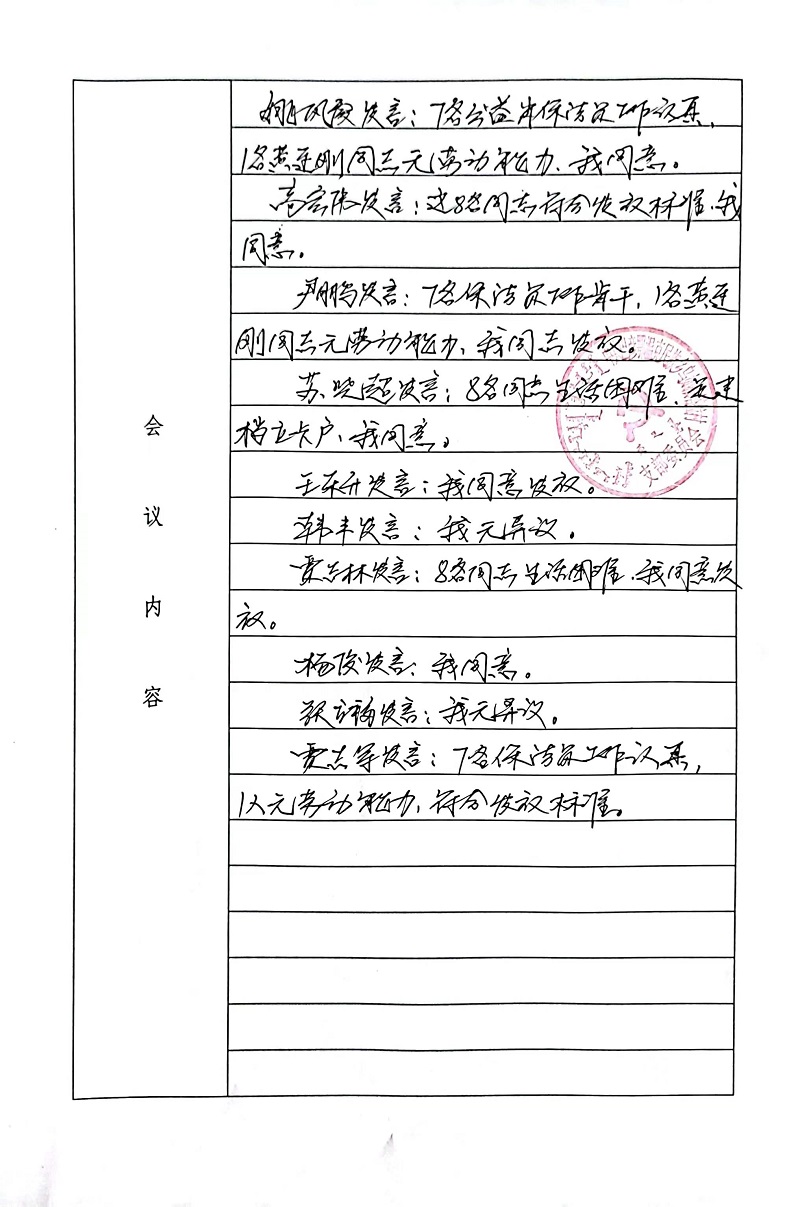 凤霞发言：7名公益岗保洁员工作认真，
1名黄连刚同志无劳动能力、我同意。
高宏陈发言：这8名同志符合发放标准、我
同意。
尹鹏发言：7名保洁员工作肯干，1名黄连
刚同志无劳动能力、我同志发放。
苏晓超发言：8名同志生活困难、是建
档立卡户、我同意。
王乐开发言：我同意发放。
韩丰发言：我无异议。
贾志林发言：8名同志生活困难、我同意发
放。
杨俊发言、我同意。
发言：我无异议。
贾志军发言：7名保洁员工作认真，
1人无劳动能力、符合发放标准。
会
议
内
容
支部委员会